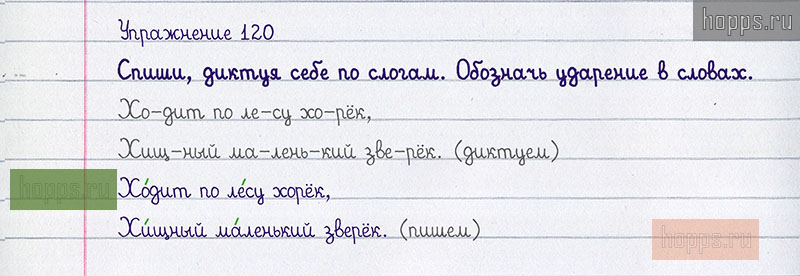 hopps.ru
Упражнение 120
Спиши, диктуя себе по слогам. Обозначь ударение в словах.
Хо-дит по ле-су хо-рёк,
Хищ-ный ма-лень-кий зве-рёк. (диктуем)
hopps.ru
Хо́дит по ле́су хорёк,
Хи́щный ма́ленький зверёк. (пишем)
hopps.ru